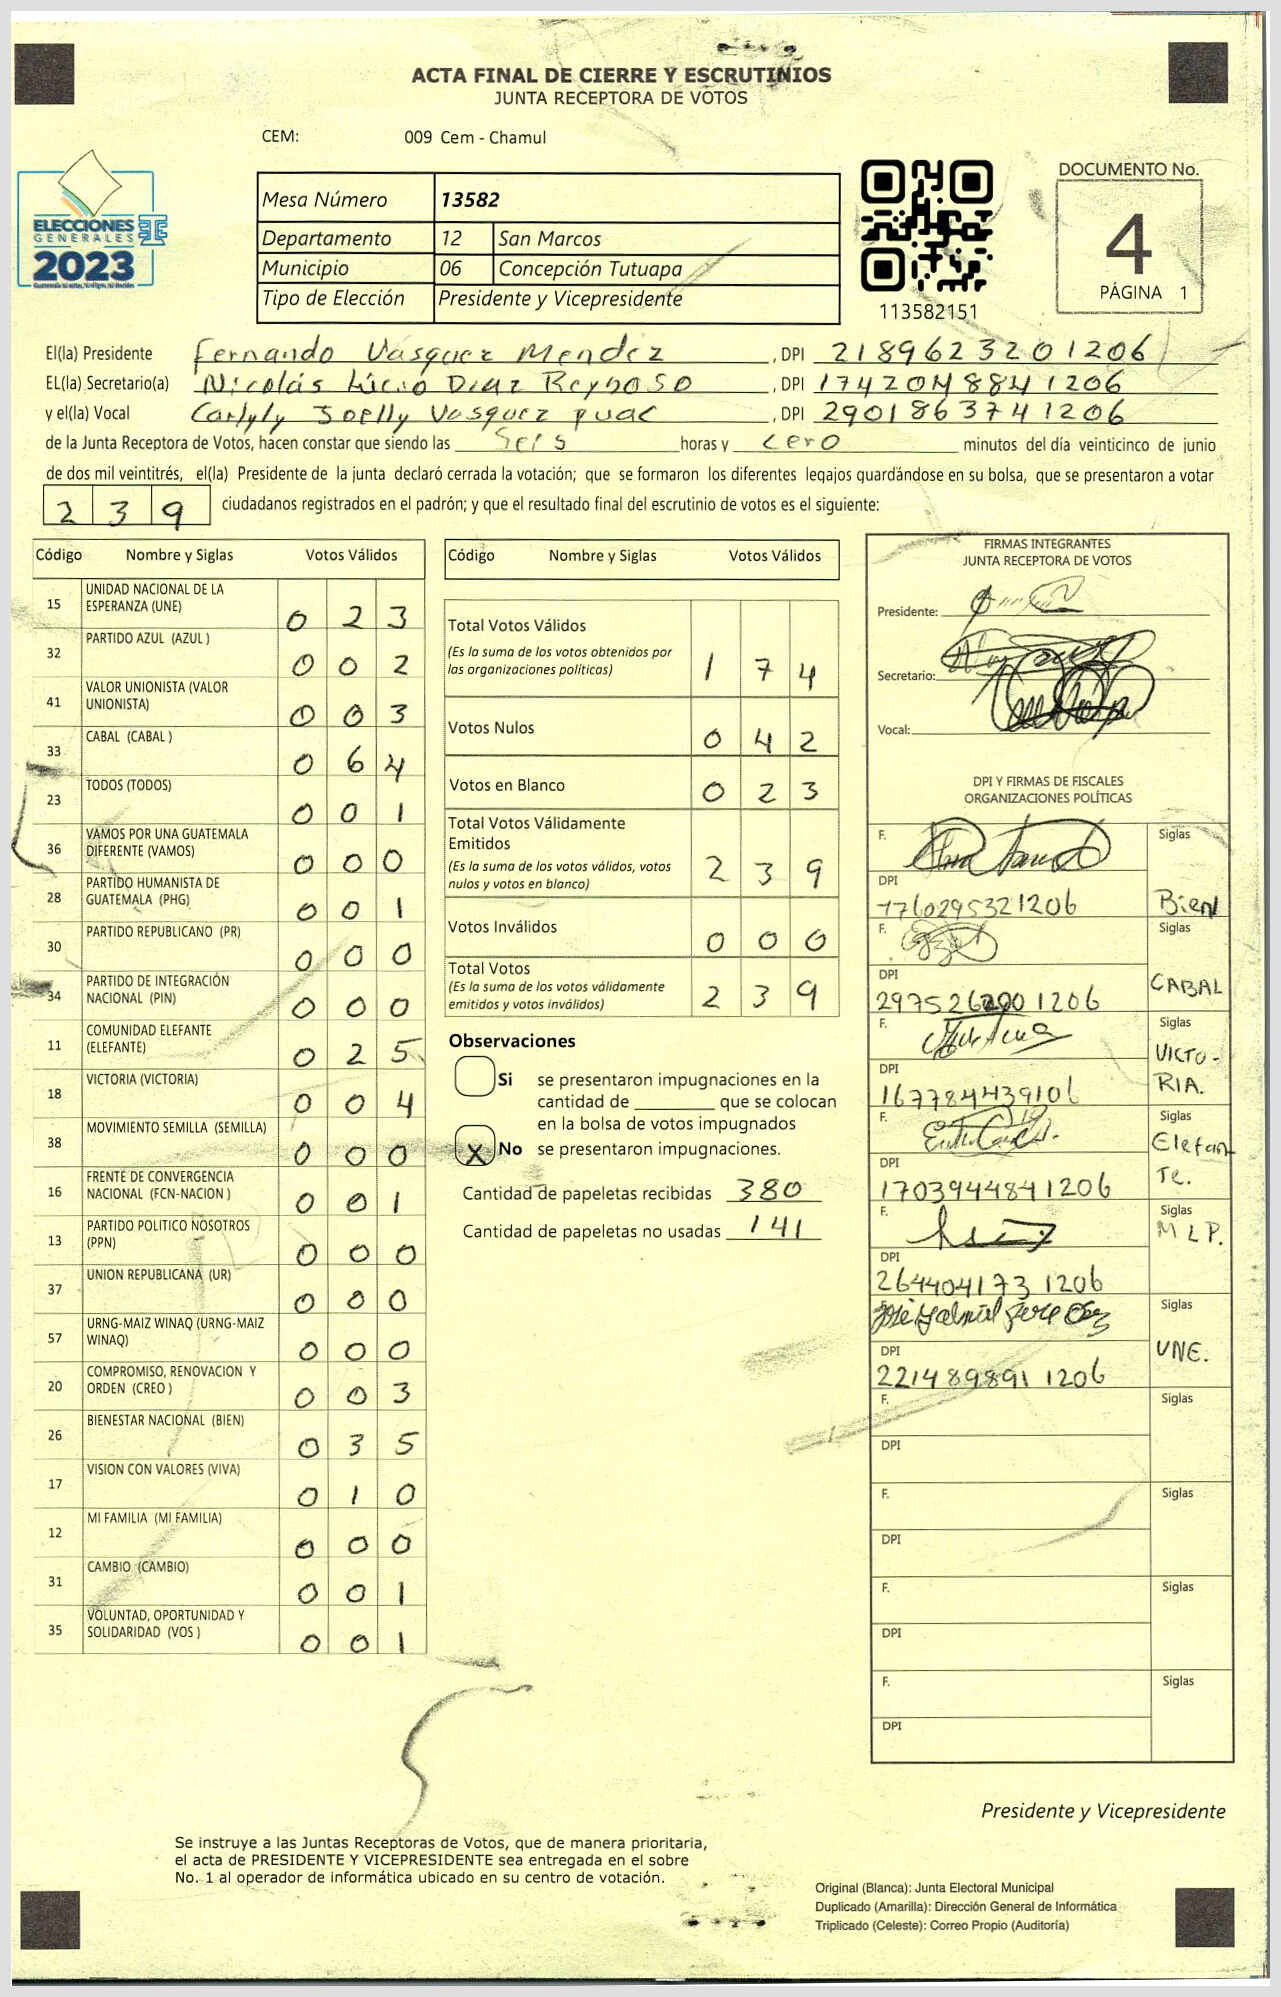 ACTA FINAL DE CIERRE Y ESCRUTINIOS
JUNTA RECEPTORA DE VOTOS
CEM: 009 Cem - Chamul
ELECCIONES
GENERALES
2023
Mesa Número 13582
Departamento 12 San Marcos
Municipio 06 Concepción Tutuapa
Tipo de Elección Presidente y Vicepresidente
113582151
DOCUMENTO No.
4
PÁGINA 1
El(la) Presidente Fernando Vásquez Mendez, DPI 2189623201206
EL(la) Secretario(a) Nicolás Lucio Diaz Reynoso, DPI 1742048841206
y el(la) Vocal Joelly Vasquez puac, DPI 2901863741206
de la Junta Receptora de Votos, hacen constar que siendo las Seis horas y cero minutos del día veinticinco de junio
de dos mil veintitrés, el(la) Presidente de la junta declaró cerrada la votación; que se formaron los diferentes legajos guardándose en su bolsa, que se presentaron a votar
239 ciudadanos registrados en el padrón; y que el resultado final del escrutinio de votos es el siguiente:
Código Nombre y Siglas Votos Válidos
15 UNIDAD NACIONAL DE LA ESPERANZA (UNE) 0 2 3
32 PARTIDO AZUL (AZUL ) 0 0 2
41 VALOR UNIONISTA (VALOR UNIONISTA) 0 0 3
33 CABAL (CABAL ) 0 6 4
23 TODOS (TODOS) 0 0 1
36 VAMOS POR UNA GUATEMALA DIFERENTE (VAMOS) 0 0 0
28 PARTIDO HUMANISTA DE GUATEMALA (PHG) 0 0 1
30 PARTIDO REPUBLICANO (PR) 0 0 0
34 PARTIDO DE INTEGRACIÓN NACIONAL (PIN) 0 0 0
11 COMUNIDAD ELEFANTE (ELEFANTE) 0 2 5
18 VICTORIA (VICTORIA) 0 0 4
38 MOVIMIENTO SEMILLA (SEMILLA) 0 0 0
16 FRENTE DE CONVERGENCIA NACIONAL (FCN-NACION ) 0 0 1
13 PARTIDO POLITICO NOSOTROS (PPN) 0 0 0
37 UNION REPUBLICANA (UR) 0 0 0
57 URNG-MAIZ WINAQ (URNG-MAIZ WINAQ) 0 0 0
20 COMPROMISO, RENOVACION Y ORDEN (CREO ) 0 0 3
26 BIENESTAR NACIONAL (BIEN) 0 3 5
17 VISION CON VALORES (VIVA) 0 1 0
12 MI FAMILIA (MI FAMILIA) 0 0 0
31 CAMBIO (CAMBIO) 0 0 1
35 VOLUNTAD, OPORTUNIDAD Y SOLIDARIDAD (VOS ) 0 0 1
Código Nombre y Siglas Votos Válidos
Total Votos Válidos 1 7 4
(Es la suma de los votos obtenidos por
las organizaciones políticas)
Votos Nulos 0 4 2
Votos en Blanco 0 2 3
Total Votos Válidamente
Emitidos 2 3 9
(Es la suma de los votos válidos, votos
nulos y votos en blanco)
Votos Inválidos 0 0 0
Total Votos 2 3 9
(Es la suma de los votos válidamente
emitidos y votos inválidos)
Observaciones
Si se presentaron impugnaciones en la
cantidad de ________ que se colocan
en la bolsa de votos impugnados
X No se presentaron impugnaciones.
Cantidad de papeletas recibidas 380
Cantidad de papeletas no usadas 141
FIRMAS INTEGRANTES
JUNTA RECEPTORA DE VOTOS
Presidente:
Secretario:
Vocal:
DPI Y FIRMAS DE FISCALES
ORGANIZACIONES POLÍTICAS
F. Siglas
DPI
1760295321206 Bien
F. Siglas
DPI CABAL
1206
F. Siglas
VICTO-
DPI RIA.
167784439106
F. Siglas
Elefan
DPI Te.
1703944841206
F. Siglas
MLP.
DPI
2644041731206
F. Siglas
DPI UNE.
2214898911206
F. Siglas
DPI
F. Siglas
DPI
F. Siglas
DPI
F. Siglas
DPI
Presidente y Vicepresidente
Se instruye a las Juntas Receptoras de Votos, que de manera prioritaria,
el acta de PRESIDENTE Y VICEPRESIDENTE sea entregada en el sobre
No. 1 al operador de informática ubicado en su centro de votación.
Original (Blanca): Junta Electoral Municipal
Duplicado (Amarilla): Dirección General de Informática
Triplicado (Celeste): Correo Propio (Auditoría)